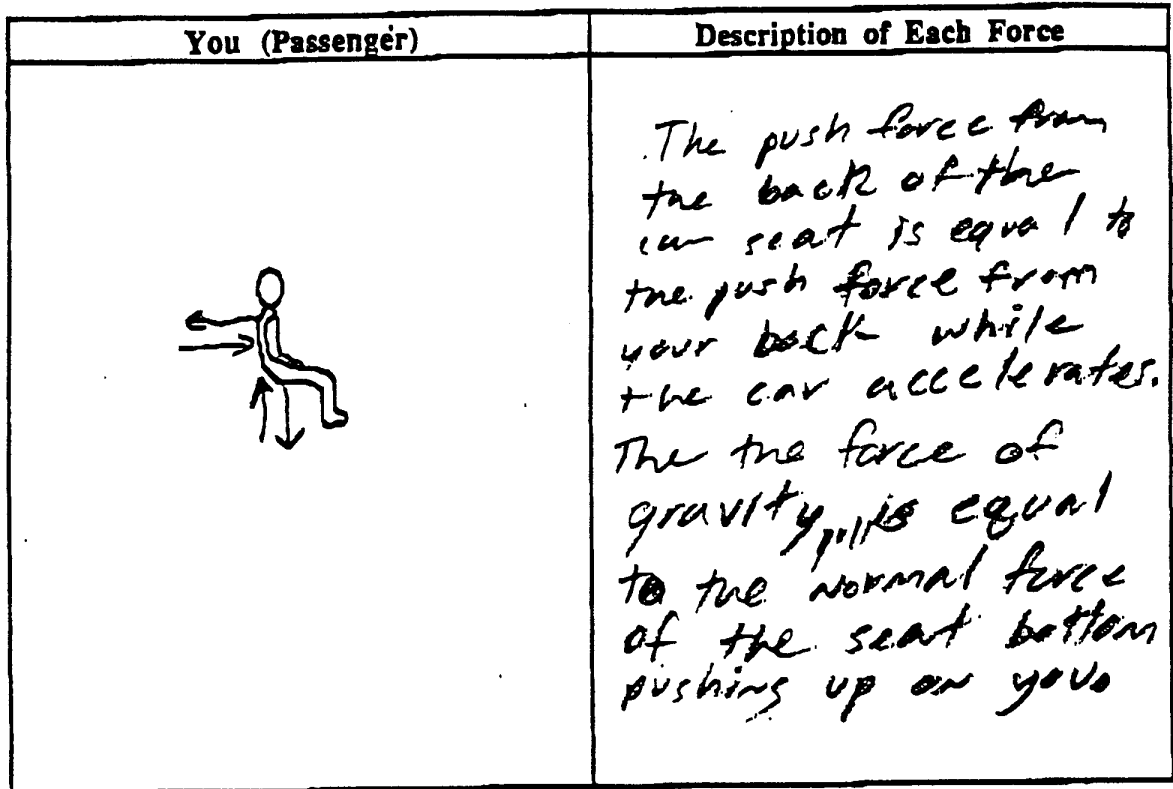 You (Passenger)
Description of Each Force
The push force from
the back of the
car seat is equal to
the push force from
your back while
the car accelerates.
The the force of
gravity pull is equal
to the normal force
of the seat bottom
pushing up on you.